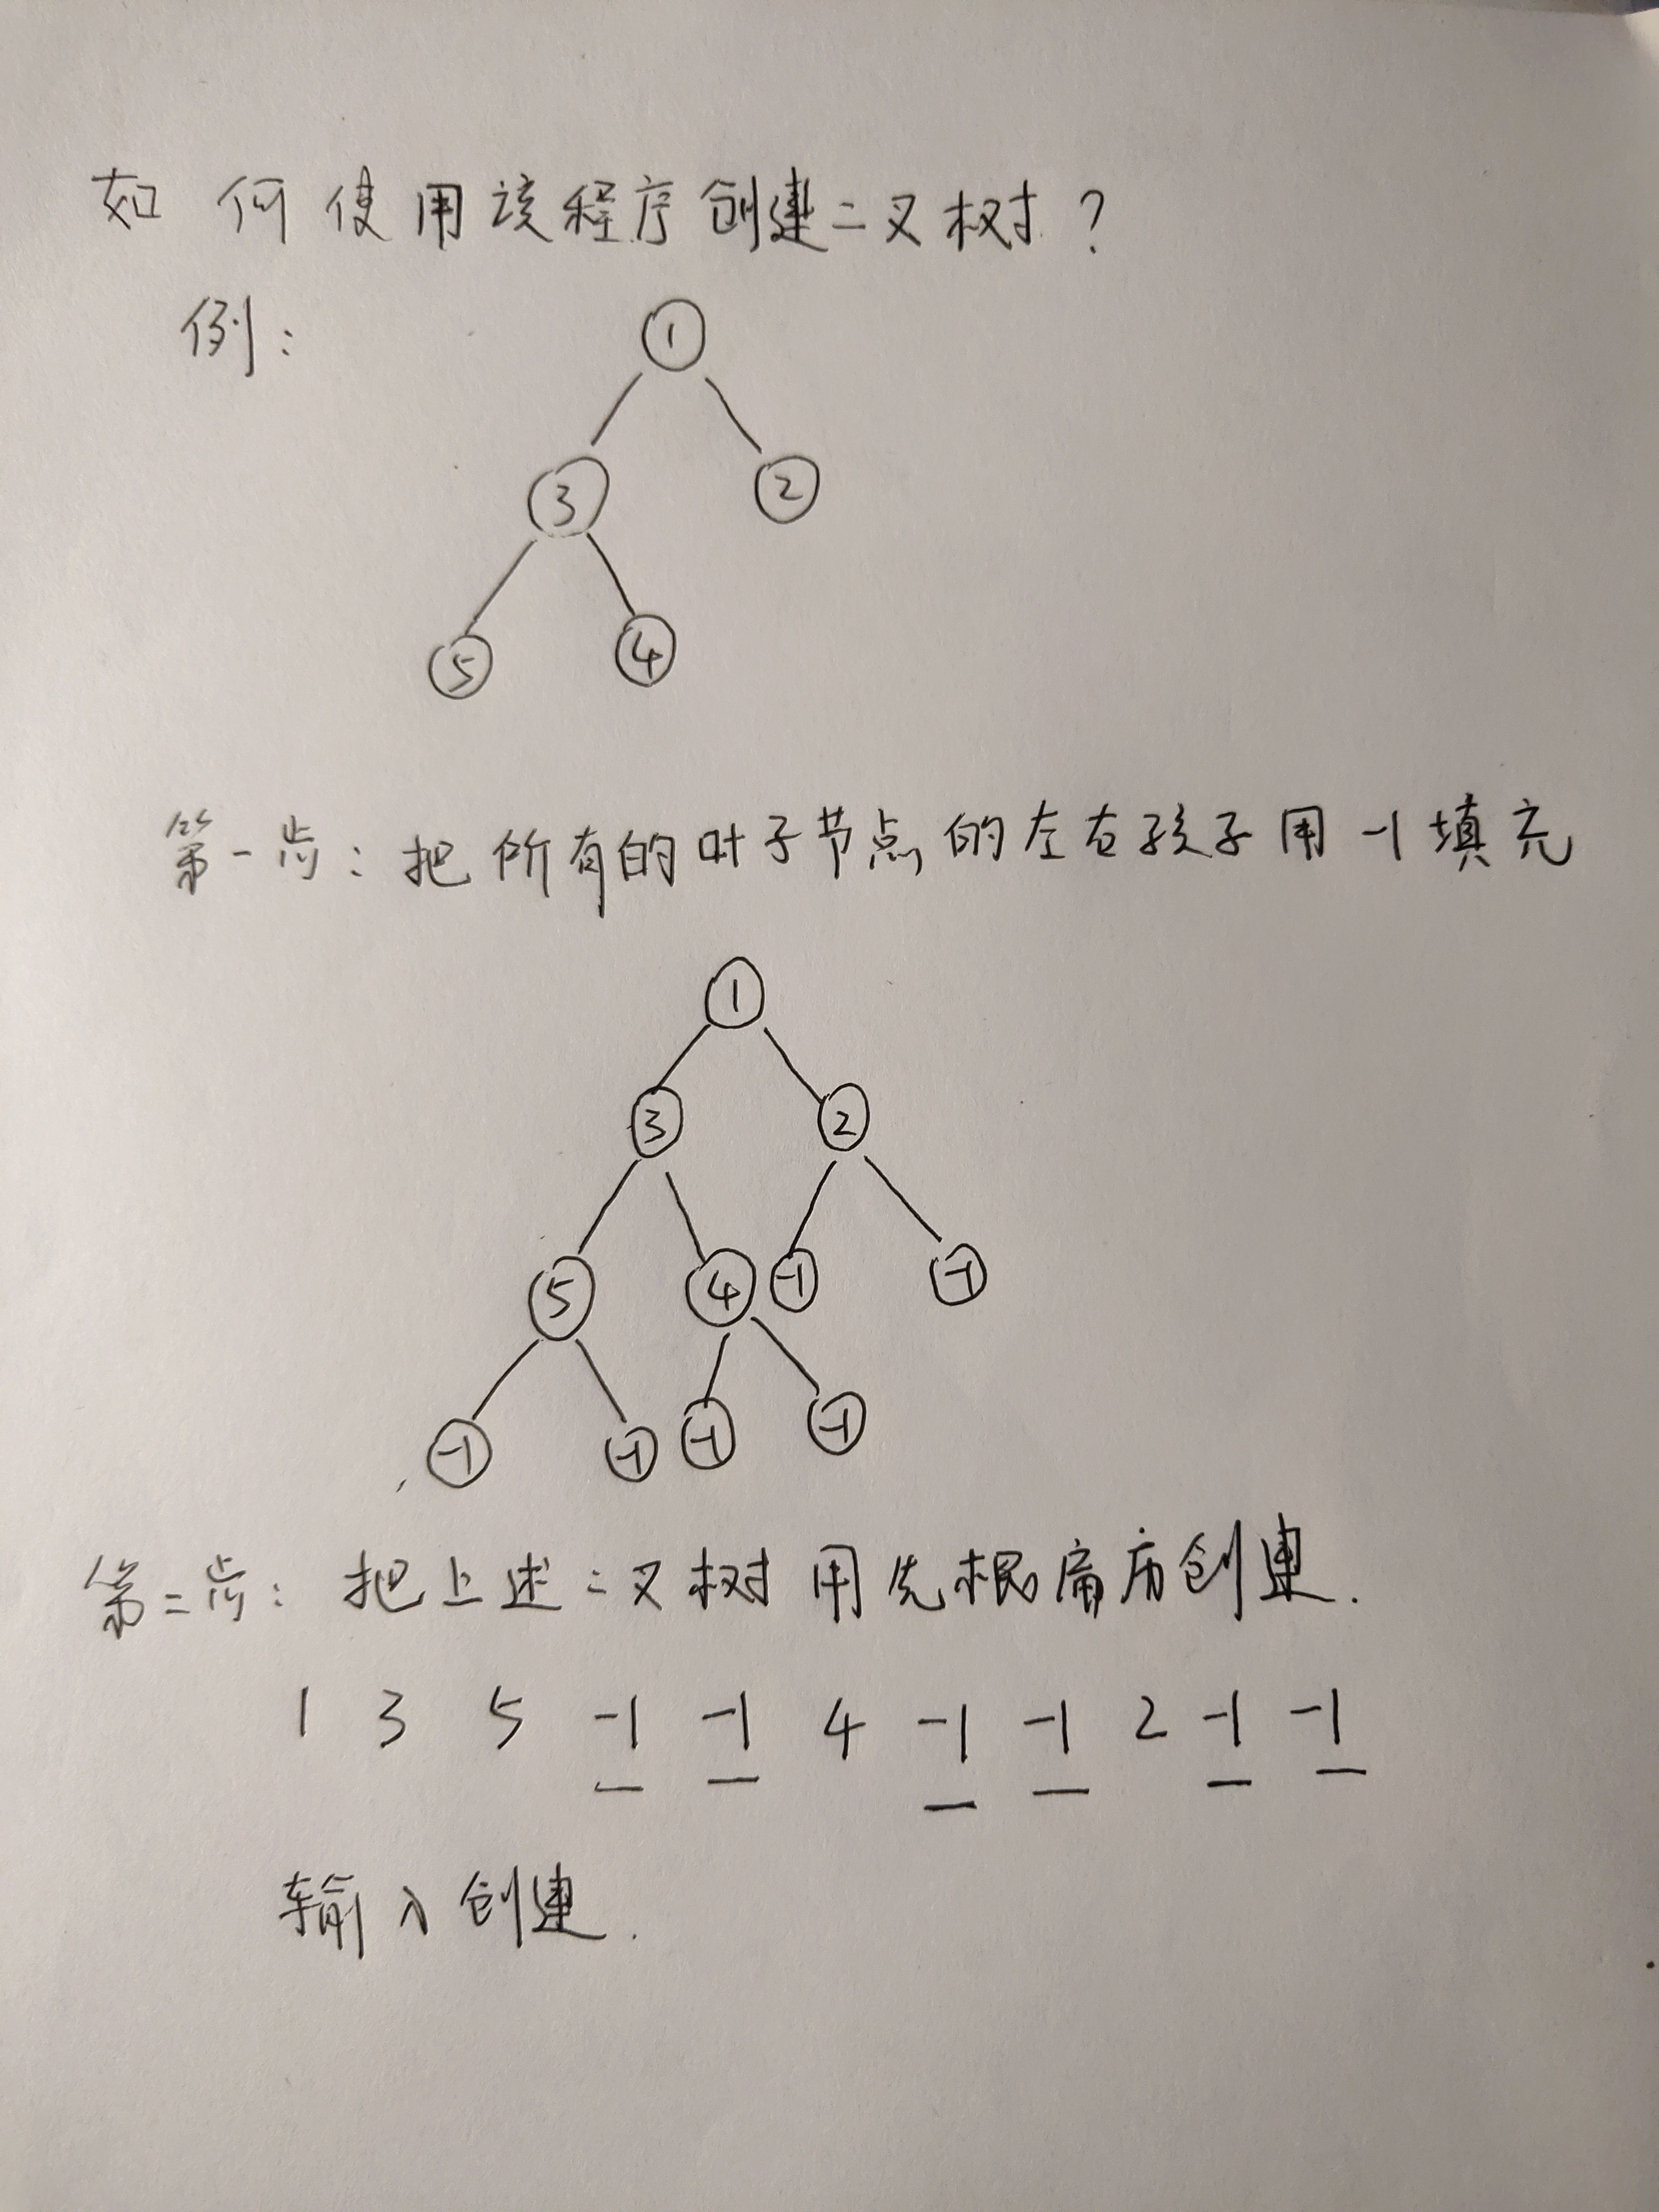 如何使用该程序创建二叉树？
例：
1
3 2
5 4
第一步：把所有的叶子节点的左右孩子用-1填充
1
3 2
5 4 -1 -1
-1 -1 -1 -1
第二步：把上述二叉树用先根遍历创建.
1 3 5 -1 -1 4 -1 -1 2 -1 -1
输入创建.